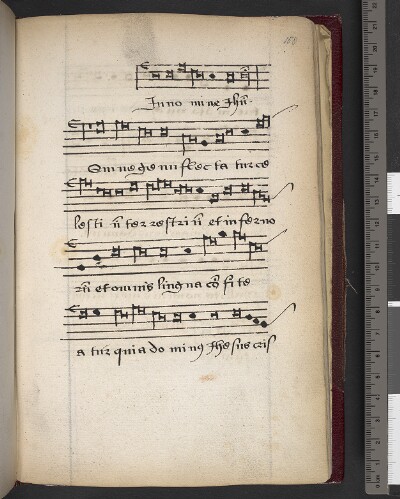 In no mi ne Jhū
Om ne ge nu flec ta tur ce
lesti ū ter restri ū et in fer no
rū et omnis lingua cō fi te
a tur quia do minꝰ Jhe sus cris